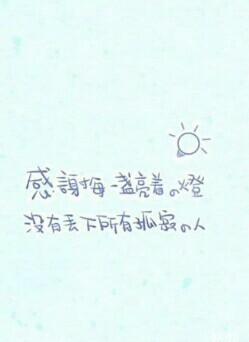 感謝每一盞亮着の燈
没有丟下所有孤寂の人